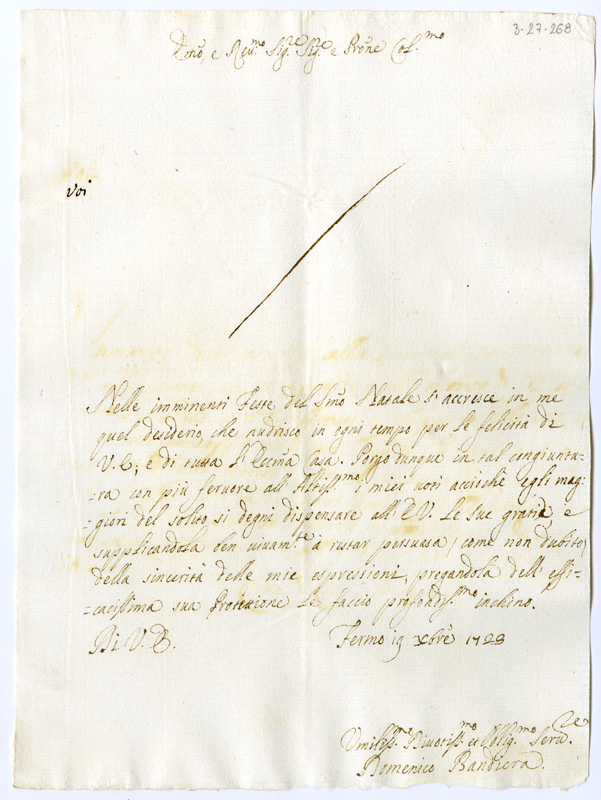 3-27-268
Emo, e Reu.mo Sig.re Sig.re e Prône Col.mo
voi
Nelle imminenti Feste del Smo Natale s'accresce in me
quel desiderio, che nudrisco in ogni tempo per le felicità di
V. E; e di tutta l'Eccma Casa. Porgo dunque in tal congiuntu=
=ra con più feruore all'Altiss.mo i miei voti acciichè egli mag=
=giori del solito si degni dispensare all'E.V. le sue gratie e
supplicandola ben viuam.te à restar persuasa (come non dubito)
della sincerità delle mie espressioni, pregandola dell'effi=
=cacissima sua Protettione le faccio profondis.mo inchino.
Di V. E.
Fermo 19 Xbre 1723
Vmiliss.mo Diuotiss.mo et Oblig.mo Seru.re
Domenico Bandiera.